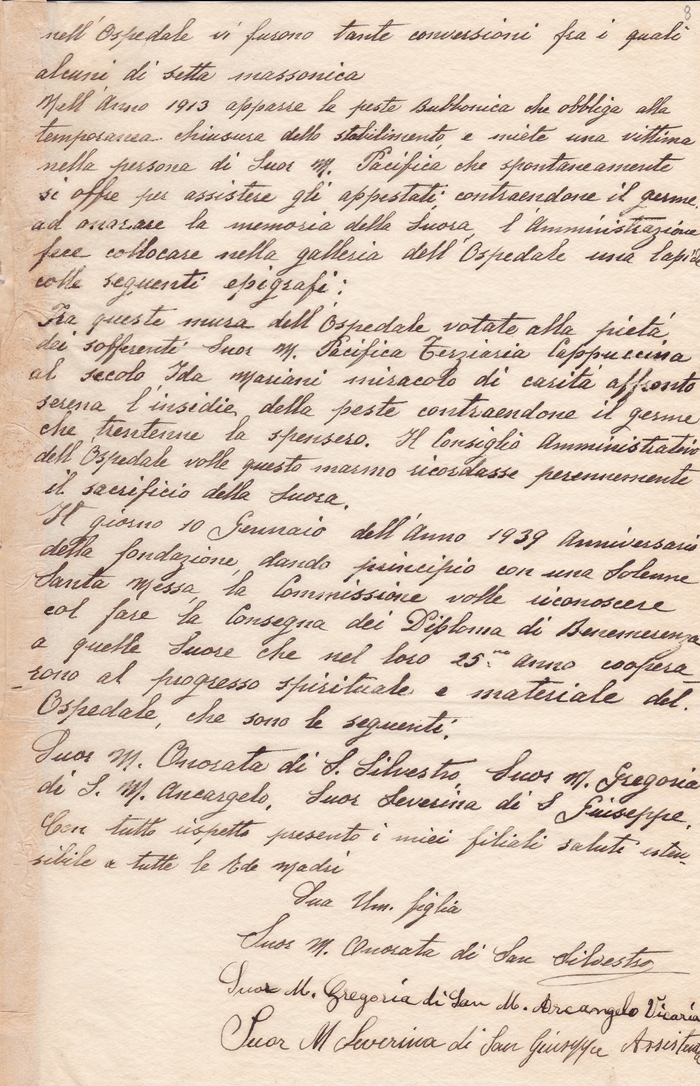 8
nell'Ospedale vi furono tante conversioni fra i quali
alcuni di setta massonica
Nell'Anno 1913 apparse la peste Bubbonica che obbliga alla
temporanea chiusura dello stabilimento, e miete una vittima
nella persona di Suor M. Pacifica che spontaneamente
si offre per assistere gli appestati contraendone il germe,
ad onorare la memoria della Suora, l'Amministrazione
fece collocare nella galleria dell'Ospedale una lapide
colle seguenti epigrafi:
Fra queste mura dell'Ospedale votate alla pietá
dei sofferenti Suor M. Pacifica Terziaria Cappuccina
al secolo Ida Mariani miracolo di caritá affronto
serena l'insidie, della peste contraendone il germe
che trentenne la spensero. Il Consiglio Amministrativo
dell'Ospedale volle questo marmo ricordasse perennemente
il sacrificio della Suora.
Il giorno 10 Gennaio dell'Anno 1939 Anniversario
della fondazione, dando principio con una Solenne
Santa Messa, la Commissione volle riconoscere
col fare la Consegna dei Diploma di Benemerenza
a quelle Suore che nel loro 25.mo anno coopera
-rono al progresso spirituale e materiale del.
Ospedale, che sono le seguenti.
Suor M. Onorata di S. Silvestro, Suor M. Gregoria
di S. M. Arcangelo, Suor Severina di S Giuseppe.
Con tutto rispetto presento i miei filiali saluti esten-
sibile a tutte le Rde Madri
Sua Um. figlia
Suor M. Onorata di San Silvestro
Suor M. Gregoria di San M. Arcangelo Vicaria
Suor M Severina di San Giuseppe Assistente